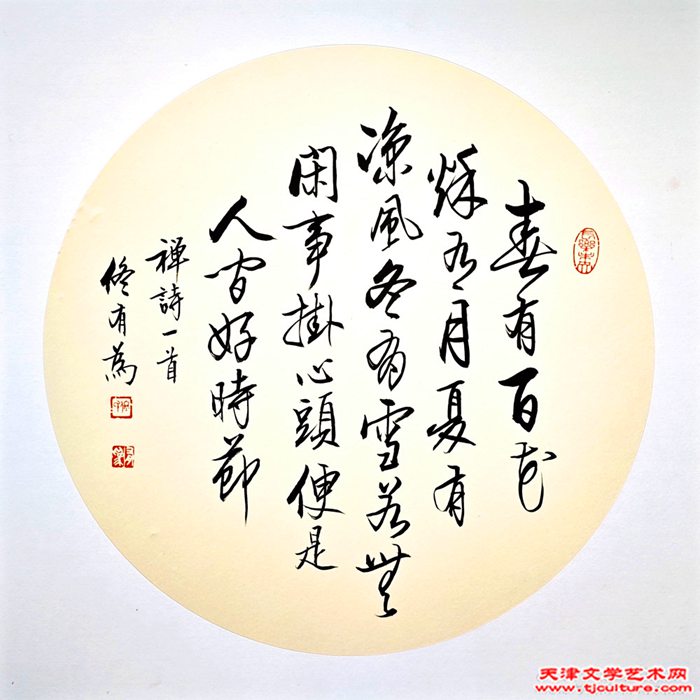 春有百花
秌有月夏有
凉風冬有雪若無
閑事掛心頭便是
人间好時節
禅詩一首
修有為
天津文学艺术网
www.tjculture.com